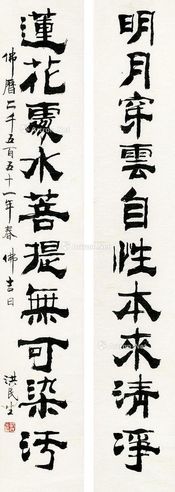 明月穿雲自性本來清淨
蓮花處水菩提無可染污
佛曆二千五百五十一年春佛吉日
洪民生